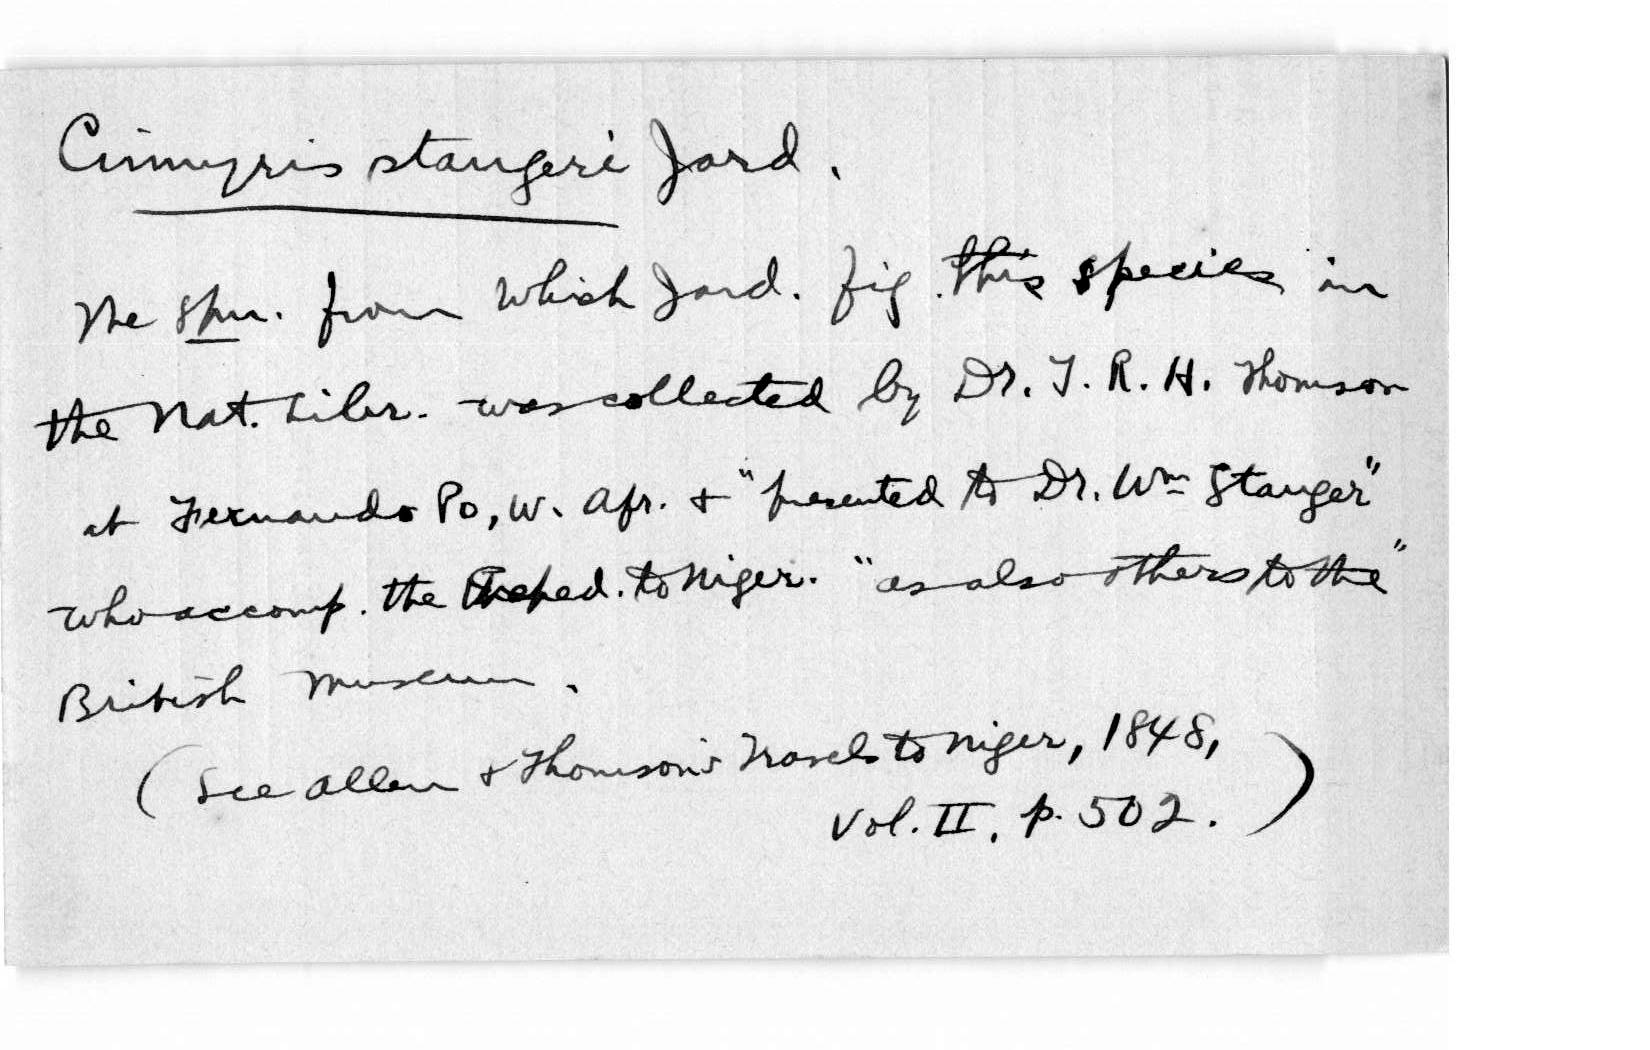 Cinnyris stangeri Jard.
The spm. from which Jard. fig. this species in
the Nat. Libr. was collected by Dr. T. R. H. Thomson
at Fernando Po, W. Afr. & "presented to Dr. Wm Stanger"
who accomp. the Exped. to Niger. "as also others to the"
British Museum.
(See Allen & Thomson's Travels to Niger, 1848,
Vol. II, p. 502.)